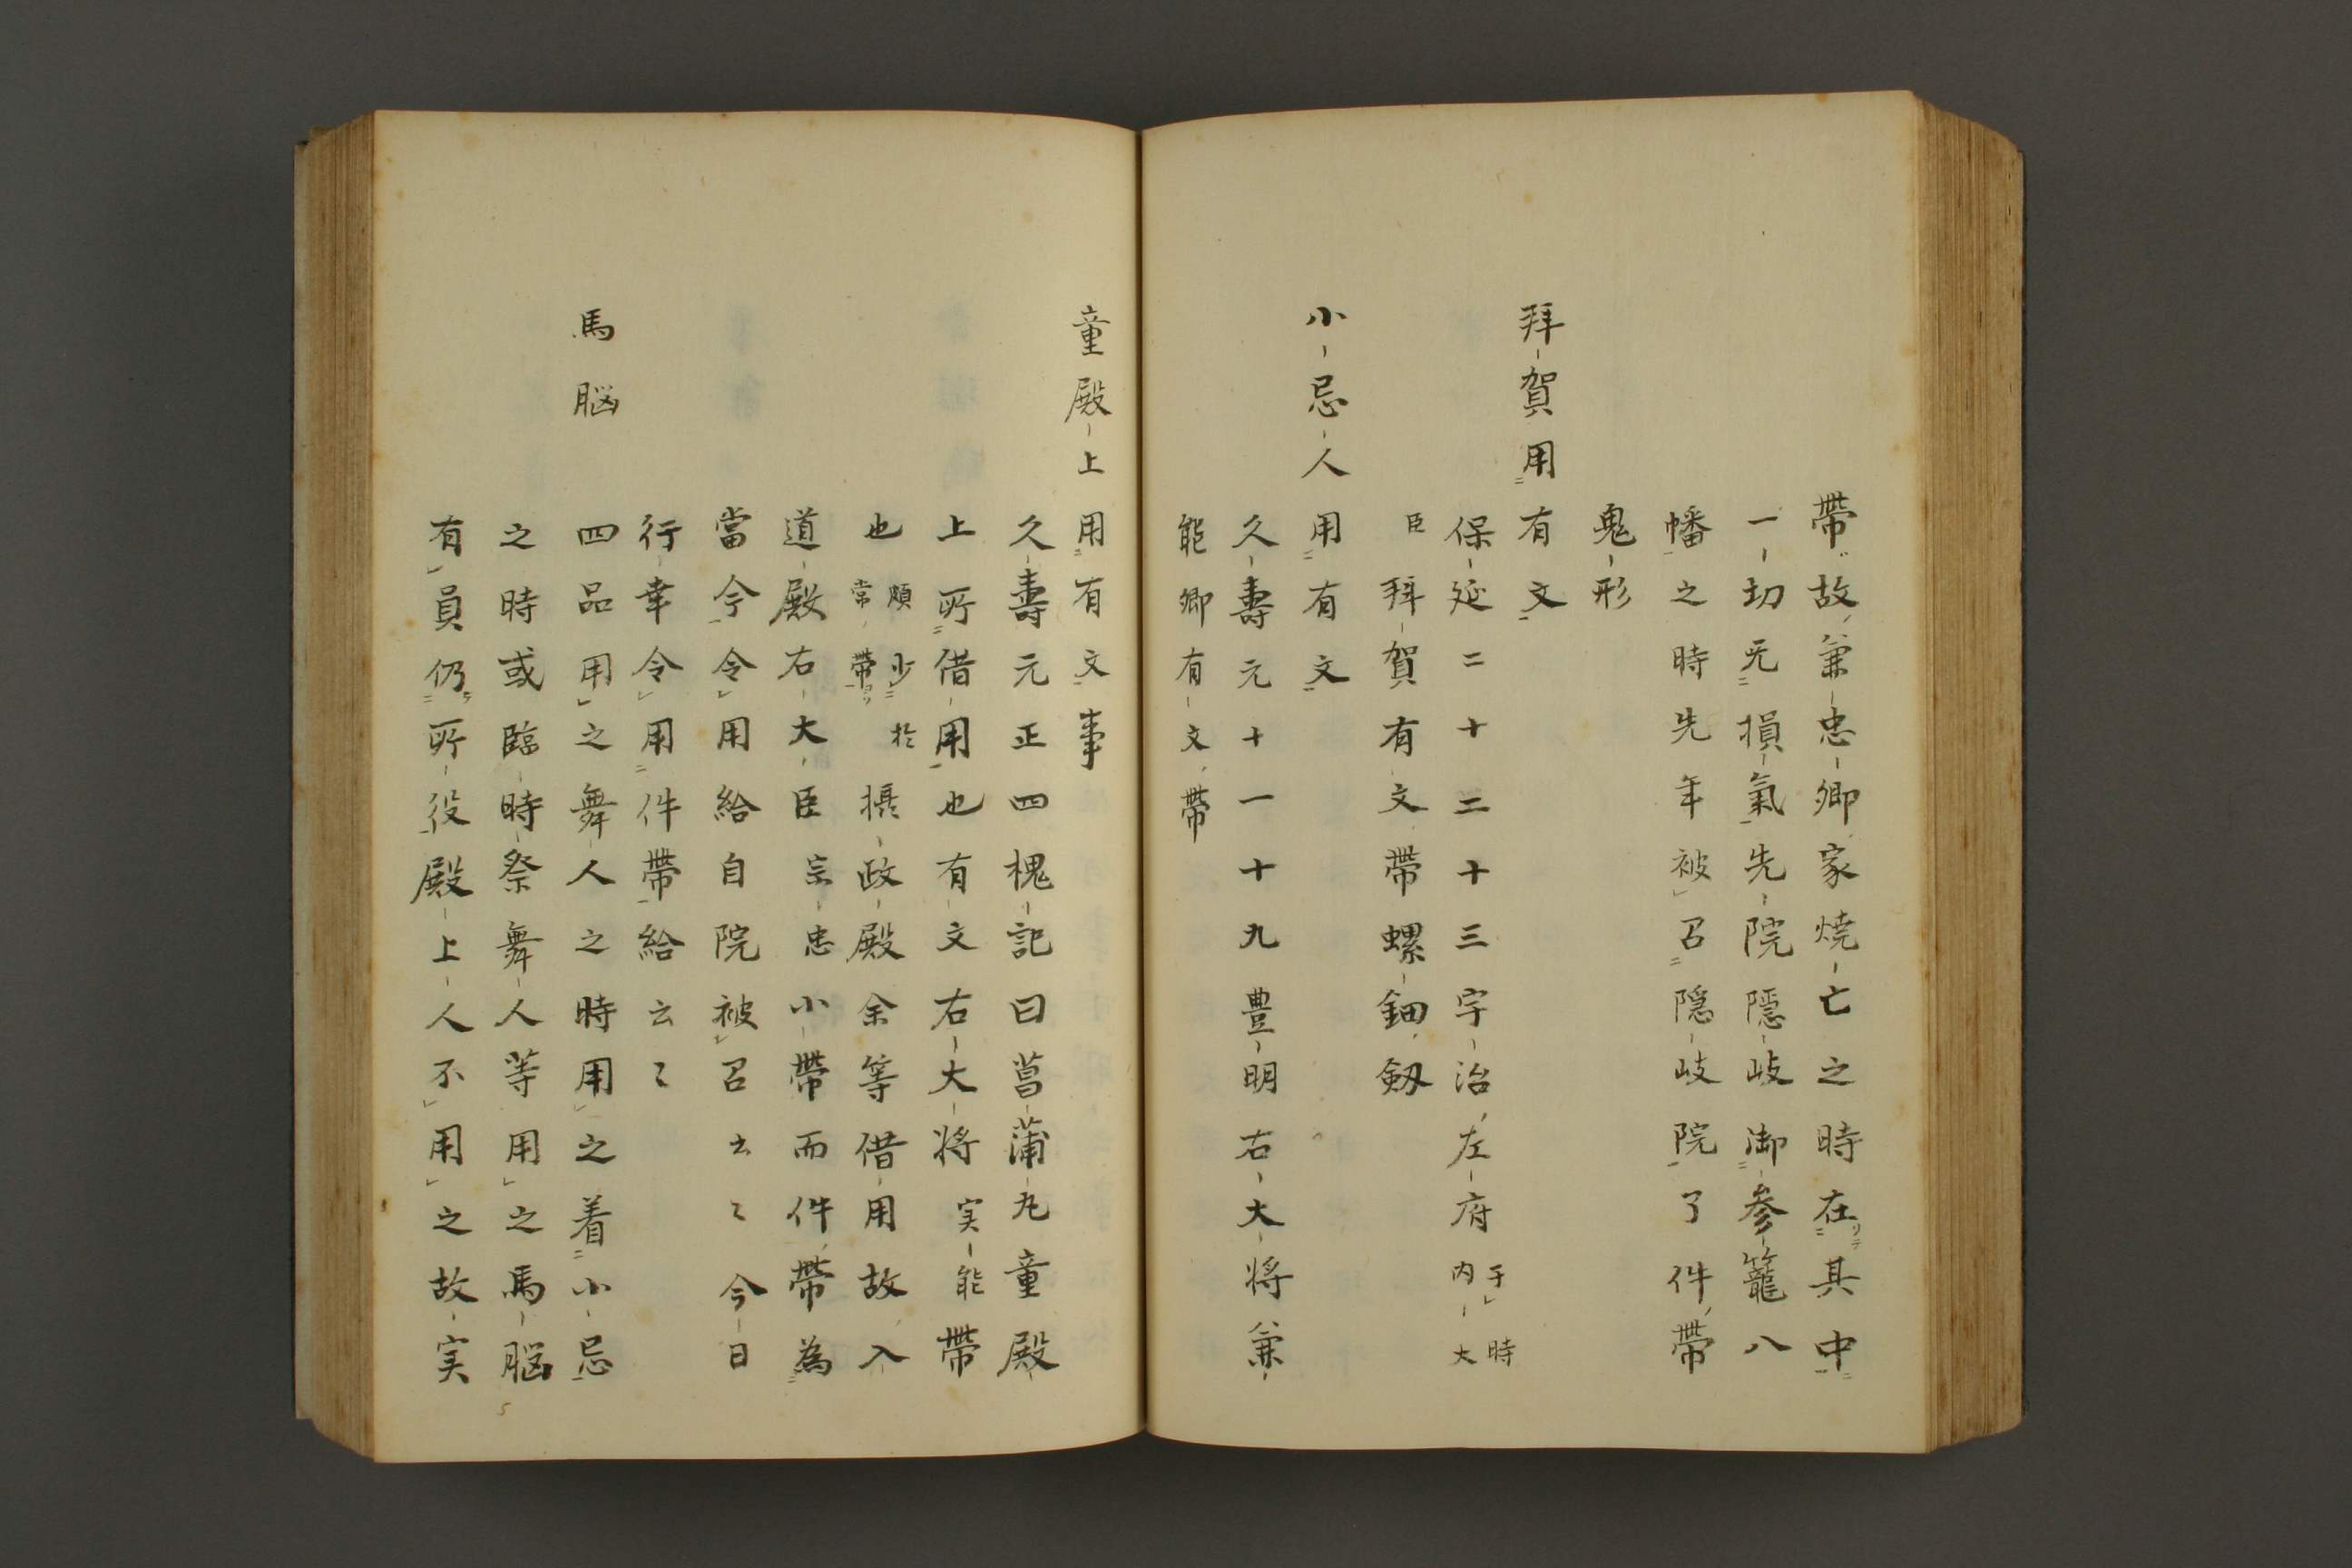 帶故兼忠卿家燒亡之時在其中
一切无損氣先院隠岐御参籠八
幡之時先年被召隠岐院了件帶
鬼形
拜賀用有文
保延二十二十三宇治左府于時内大
臣拜賀有文帶螺鈿劔
小忌人用有文
久壽元十一十九豊明右大将兼
能卿有文帶
童殿上用有文事
久壽元正四槐記曰菖蒲丸童殿
上所借用也有文右大将実能帶
也頗少於常帶摂政殿余等借用故入
道殿右大臣宗忠小帶而件帶為
當今令用給自院被召云〻今日
行幸令用件帶給云〻
馬脳
四品用之舞人之時用之着小忌
之時或臨時祭舞人等用之馬脳
有員仍所役殿上人不用之故実